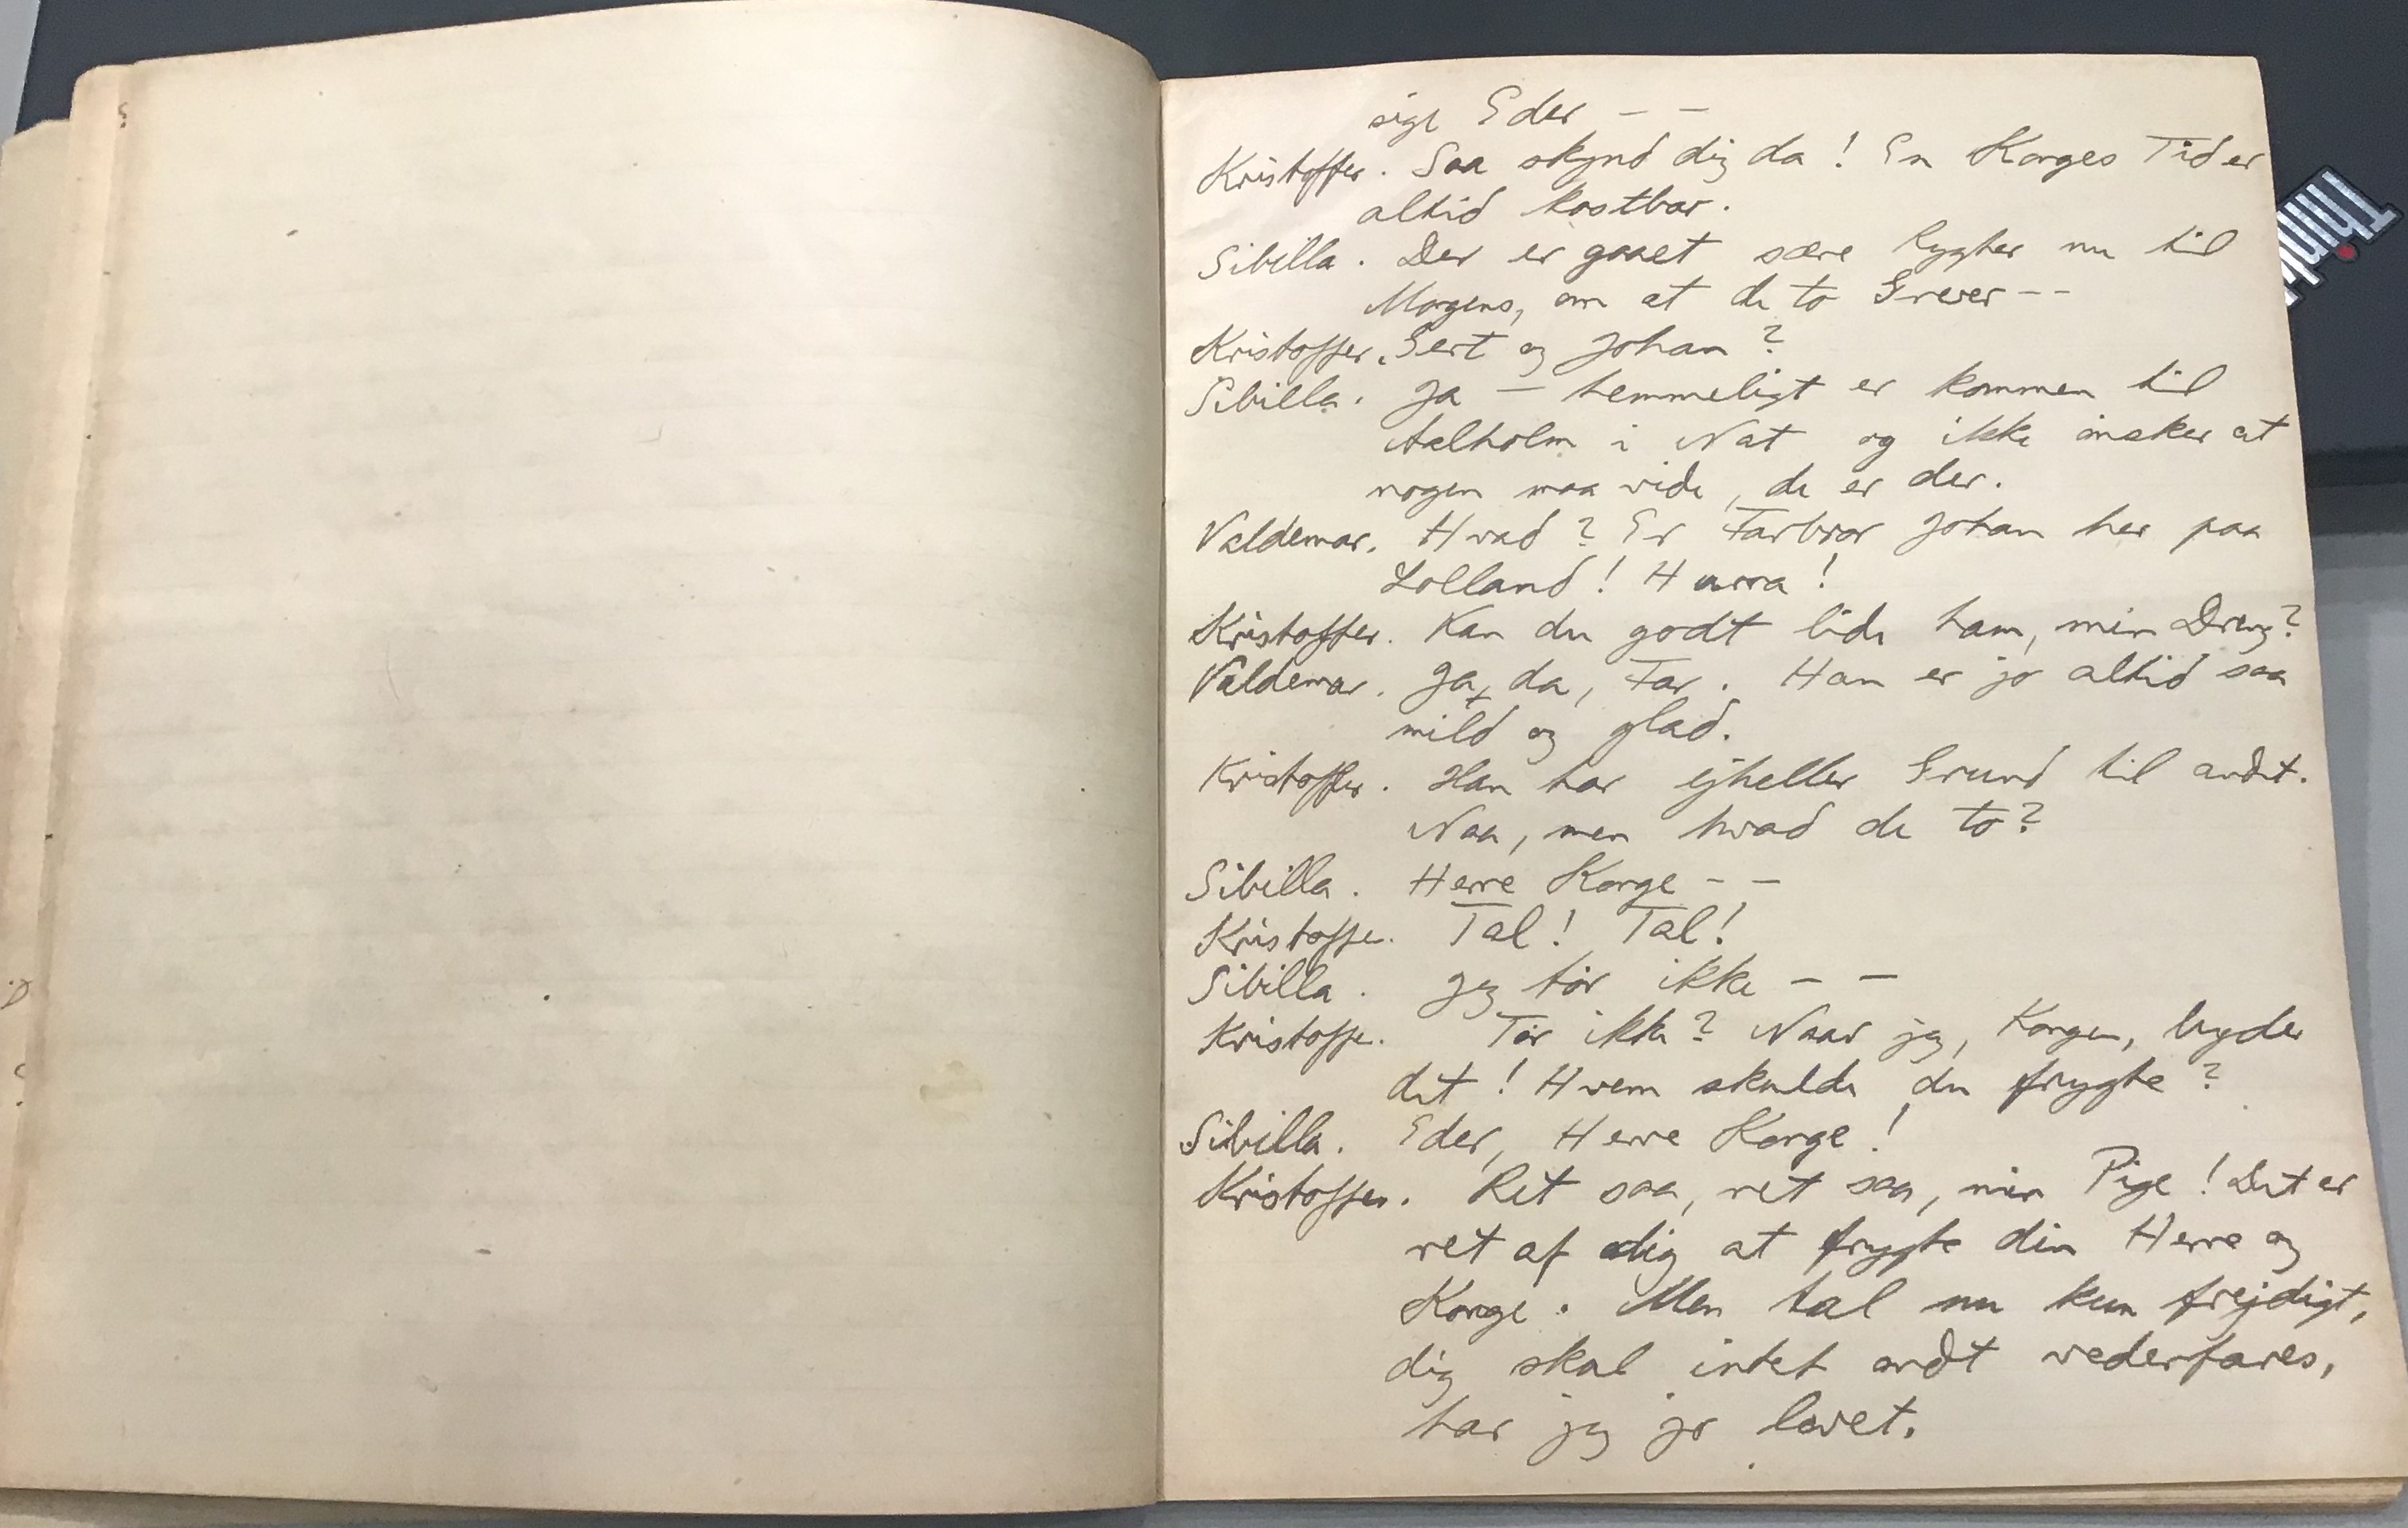 sige Eder – –
Kristoffer. Saa skynd dig da! En Konges Tid er
altid kostbar.
Sibilla. Der er gaaet sære Rygter nu til
Morgens, om at de to Grever – –
Kristoffer. Gert og Johan?
Sibilla. Ja – hemmeligt er kommen til
Aalholm i Nat og ikke ønsker at
nogen maa vide, de er der.
Valdemar. Hvad? Er Farbror Johan her paa
Lolland! Hurra!
Kristoffer. Kan du godt lide ham, min Dreng?
Valdemar. Ja, da, Far. Han er jo altid saa
mild og glad.
Kristoffer. Han har ejheller Grund til andet.
Naa, men hvad de to?
Sibilla. Herre Konge – –
Kristoffer. Tal! Tal!
Sibilla. Jeg tør ikke – –
Kristoffer. Tør ikke? Naar jeg, Kongen, byder
det! Hvem skulde du frygte?
Sibilla. Eder, Herre Konge!
Kristoffer. Ret saa, ret saa, min Pige! Det er
ret af dig at frygte din Herre og
Konge. Men tal nu kun frejdigt,
dig skal intet ondt vederfares,
har jeg jo lovet.
Think